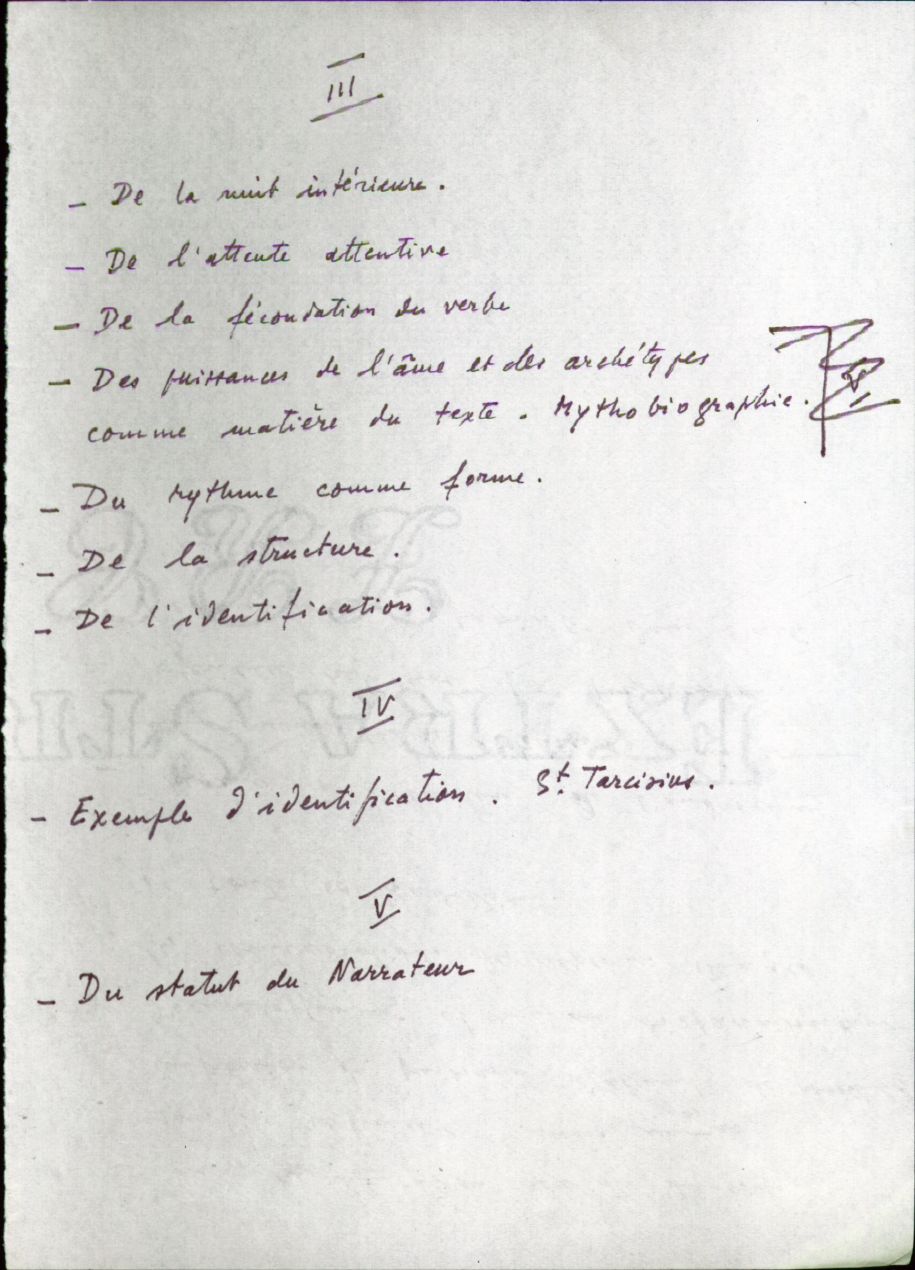 III
- De la nuit intérieure.
- De l'attente attentive
- De la fécondation du verbe
- Des puissances de l'âme et des archétypes
comme matière du texte. Mythobiographie.
- Du rythme comme forme.
- De la structure.
- De l'identification.
IV
- Exemple d'identification. St. Tarcisius.
V
- Du statut du Narrateur